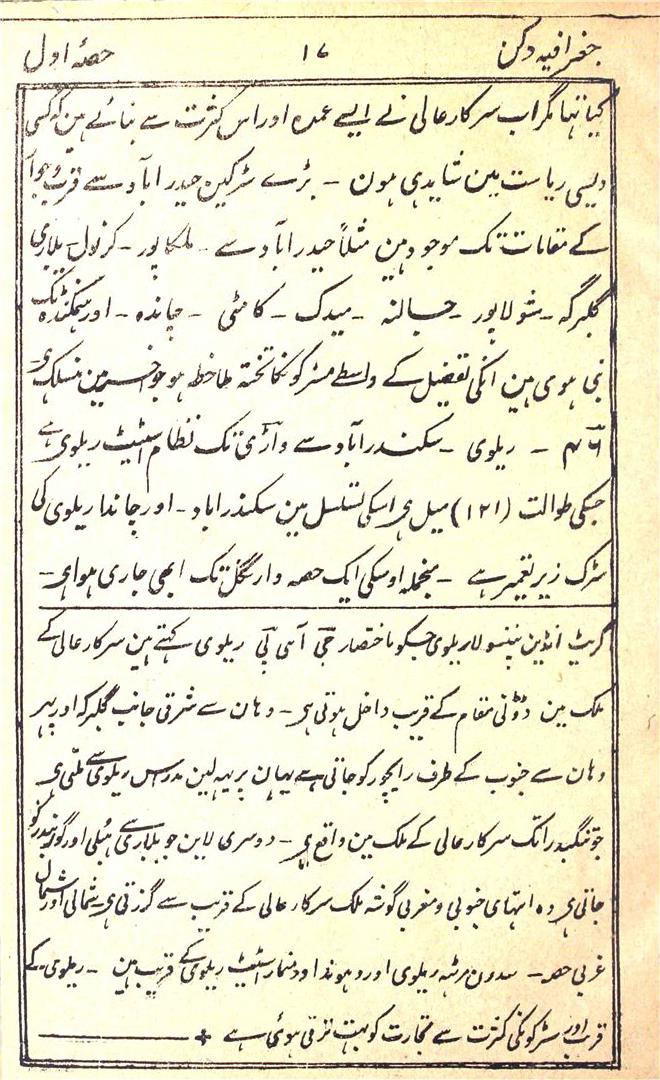 جغرافیہ دکن ۱۷ حصہ اول
کیا تہا مگر اب سرکار عالی نے ایسے عمدہ اور اس کثرت سے بنائے ہین کہ کسی
دیسی ریاست مین شاید ہی ہون ۔ بڑے سڑکین حیدراباد سے قرب وجوار
کے مقامات تک موجود ہین مثلاً حیدراباد سے ۔ ملکاپور ۔ کرنول ۔ بلاری
گلبرگہ ۔ شولاپور ۔ جالنہ ۔ میدک ۔ کامٹی ۔ چاندہ ۔ اور نلگنڈہ تک
بنی ہوی ہین انکی تفصیل کے واسطے سڑکونکا تختہ ملاحظہ ہو جو اخیر مین منسلک ہی
۔ ریلوی ۔ سکندراباد سے واڑی تک نظام اسٹیٹ ریلوی ہے
جسکی طوالت (۱۲۱) میل ہی اسکی تسلسل مین سکندراباد ۔ اور چاندا ریلوی کی
سڑک زیر تعمیر ہے ۔ منجملہ اوسکی ایک حصہ وارنگل تک ابھی جاری ہوا ہی ۔
گریٹ انڈین پننسولا ریلوی جسکو باختصار جی آئی پی ریلوی کہتے ہین سرکار عالی کے
ملک مین دوڈنی مقام کے قریب داخل ہوتی ہی ۔ وہان سے شرقی جانب گلبرگہ اور پہر
وہان سے جنوب کے طرف رایچور کو جاتی ہے یہان پر یہہ لین مدراس ریلوی سے ملتی ہی
جو تنگبدرا تک سرکار عالی کے ملک مین واقع ہی ۔ دوسری لاین جو بلاری سے ہبلی اور گوا بندر کو
جاتی ہی وہ انتہای جنوبی و مغربی گوشہ ملک سرکار عالی کے قریب سے گزرتی ہی شمالی اور شمال
غربی حصہ ۔ سدرن مرہٹہ ریلوی اور دہوند اور منمار اسٹیٹ ریلوی کے قریب ہین ۔ ریلوی کے
قرب اور سڑکونکی کثرت سے تجارت کو بہت ترقی ہوئی ہے +